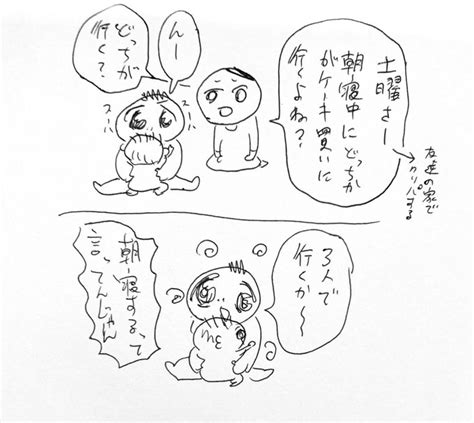 土曜さー
朝寝中にどっちか
がケーキ買いに
行くよね?
友達の家で
クリパする
んー
どっちが
行く?
スハ
スハ
3人で
行くか〜
朝寝するって
言ってんじゃん
3人